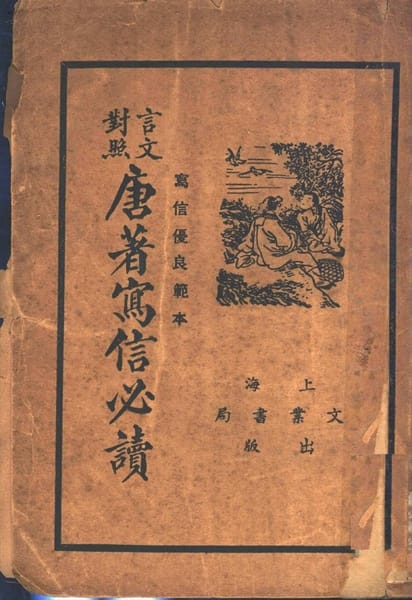 言文
對照
唐著寫信必讀
寫信優良範本
上海
文業書局
出版